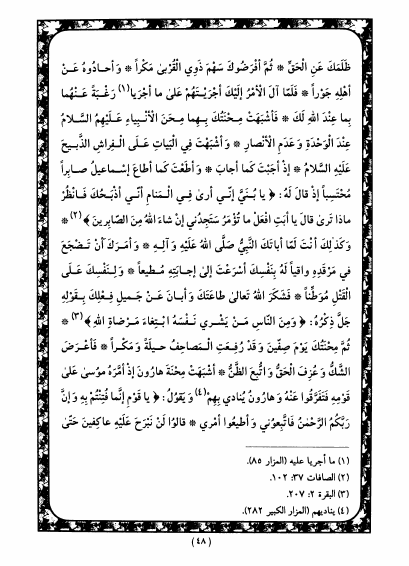 ظَلَمَكَ عَنِ الْحَقِّ * ثُمَّ أَفْرَضُوكَ سَهْمَ ذَوِي الْقُرْبىٰ مَكْراً * وَأَحادُوهُ عَنْ
أَهْلِهِ جَوْراً * فَلَمّا آلَ الْأَمْرُ إِلَيْكَ أَجْرَيْتَهُمْ عَلىٰ ما أَجْرَيا(١) رَغْبَةً عَنْهُما
بِما عِنْدَ اللهِ لَكَ * فَأَشْبَهَتْ مِحْنَتُكَ بِهِما مِحَنَ الْأَنْبِياءِ عَلَيْهِمُ السَّلامُ
عِنْدَ الْوَحْدَةِ وَعَدَمِ الْأَنْصارِ * وَأَشْبَهْتَ فِي الْبَياتِ عَلَى الْفِراشِ الذَّبِيحَ
عَلَيْهِ السَّلامُ * إِذْ أَجَبْتَ كَما أَجابَ * وَأَطَعْتَ كَما أَطاعَ إِسْماعِيلُ صابِراً
مُحْتَسِباً إِذْ قالَ لَهُ: ﴿ يا بُنَيَّ إِنّي أَرىٰ فِي الْمَنامِ أَنّي أَذْبَحُكَ فَانْظُرْ
ماذا تَرىٰ قالَ يا أَبَتِ افْعَلْ ما تُؤْمَرُ سَتَجِدُنِي إِنْ شاءَ اللهُ مِنَ الصّابِرِينَ ﴾(٢) *
وَكَذٰلِكَ أَنْتَ لَمّا أَباتَكَ النَّبِيُّ صَلَّى اللهُ عَلَيْهِ وَآلِهِ * وَأَمَرَكَ أَنْ تَضْجَعَ
في مَرْقَدِهِ واقِياً لَهُ بِنَفْسِكَ أَسْرَعْتَ إِلىٰ إِجابَتِهِ مُطِيعاً * وَلِنَفْسِكَ عَلَى
الْقَتْلِ مُوَطِّناً * فَشَكَرَ اللهُ تَعالىٰ طاعَتَكَ وَأَبانَ عَنْ جَمِيلِ فِعْلِكَ بِقَوْلِهِ
جَلَّ ذِكْرُهُ: ﴿ وَمِنَ النّاسِ مَنْ يَشْرِي نَفْسَهُ ابْتِغاءَ مَرْضاةِ اللهِ ﴾(٣) *
ثُمَّ مِحْنَتُكَ يَوْمَ صِفِّينَ وَقَدْ رُفِعَتِ الْمَصاحِفُ حِيلَةً وَمَكْراً * فَأَعْرَضَ
الشَّكُّ وَعُزِفَ الْحَقُّ وَاتُّبِعَ الظَّنُّ * أَشْبَهَتْ مِحْنَةَ هارُونَ إِذْ أَمَّرَهُ مُوسىٰ عَلىٰ
قَوْمِهِ فَتَفَرَّقُوا عَنْهُ وَهارُونُ يُنادِي بِهِمْ(٤) وَيَقُولُ: ﴿ يا قَوْمِ إِنَّما فُتِنْتُمْ بِهِ وَإِنَّ
رَبَّكُمُ الرَّحْمٰنُ فَاتَّبِعُونِي وَأَطِيعُوا أَمْرِي * قالُوا لَنْ نَبْرَحَ عَلَيْهِ عاكِفِينَ حَتّىٰ
(١) ما أجريا عليه (المزار ٨٥).
(٢) الصافات ٣٧: ١٠٢.
(٣) البقرة ٢: ٢٠٧.
(٤) يناديهم (المزار الكبير ٢٨٢).
(٤٨)